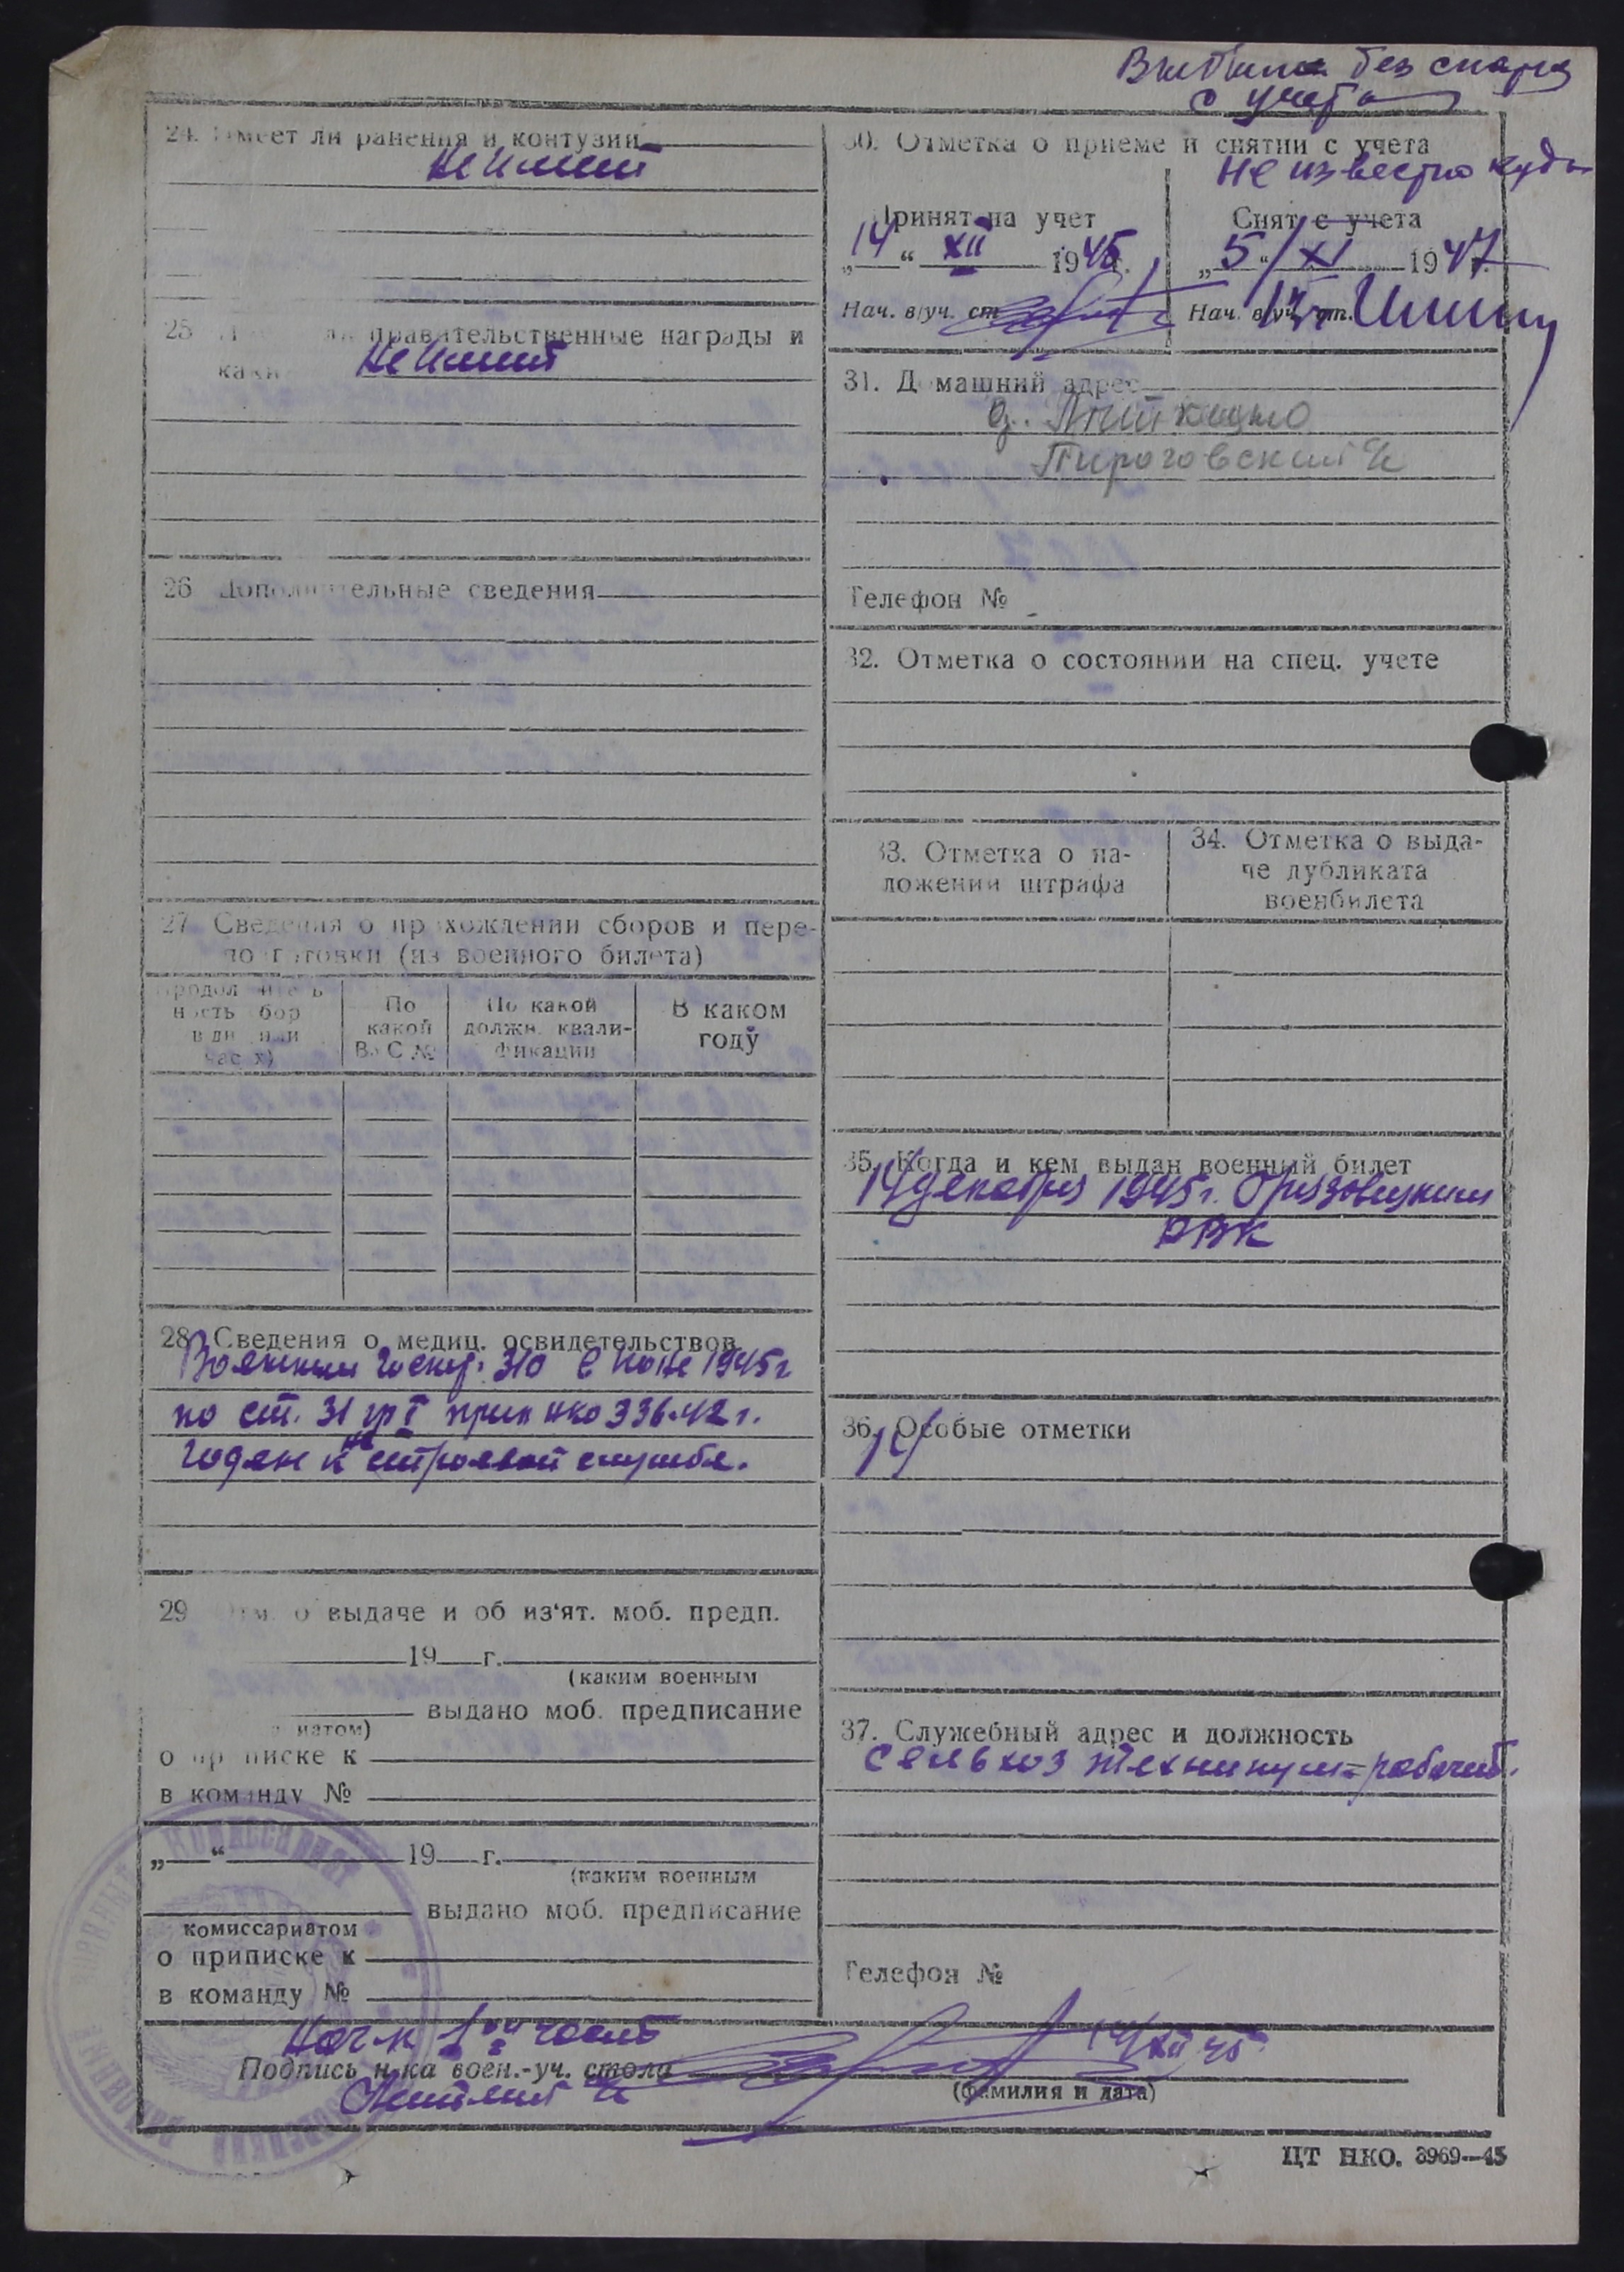 без снятия
с учета
24. Имеет ли ранения и контузии
Не имеет
25 правительственные награды и
каки
Не имеет
26 Дополнительные сведения
27. Сведения о прохождении сборов и пере-
подготовки (из военного билета)
Продолжитель
ность сбор
в дн
час х)
По
какой
ВУС №
По какой
должн. квали-
фикации
В каком
году
28. Сведения о медиц. освидетельствов.
1945 г
по ст. 31 гр I прик НКО 336-42 г.
годен к не строевой службе.
29 Отм. о выдаче и об из'ят. моб. предп.
19 г.
(каким военным
выдано моб. предписание
иатом)
о приписке к
в команду №
„ “ 19 г.
(каким военным
выдано моб. предписание
комиссариатом
о приписке к
в команду №
30. Отметка о приеме и снятии с учета
не известно куда
Принят на учет
„14“ XII 1945 г.
Нач. в/уч. ст
Снят с учета
„5“ XI 1947
Нач. в/уч. ст.
31. Домашний адрес
Пироговская
Телефон №
32. Отметка о состоянии на спец. учете
33. Отметка о на-
ложении штрафа
34. Отметка о выда-
че дубликата
военбилета
35. Когда и кем выдан военный билет
14 декабря 1945 г.
РВК
36. Особые отметки
37. Служебный адрес и должность
сельхоз техникум - рабочий.
Телефон №
Нач-к 1ой части
Подпись н-ка воен.-уч. стола
14/XII 45
(фамилия и дата)
ЦТ НКО. 3969—45